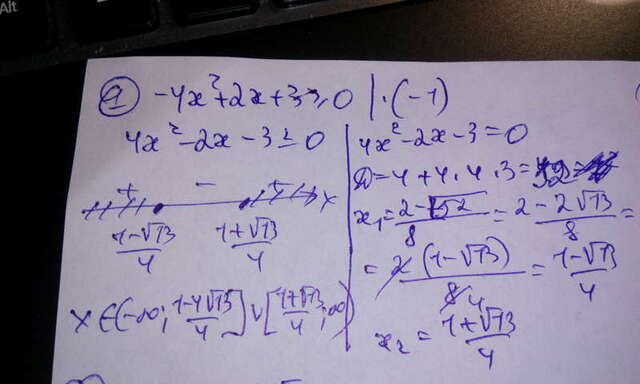 Alt
а) -4x²+2x+3≥0 |·(-1)
4x²-2x-3≥0
+ - + x
(1-√13)/4 (1+√13)/4
x∈(-∞; (1-√13)/4]∪[(1+√13)/4; ∞)
4x²-2x-3=0
D=4+4·4·3=52=
x₁=(2-√52)/8=(2-2√13)/8=
=2(1-√13)/8 4=(1-√13)/4
x₂=(1+√13)/4